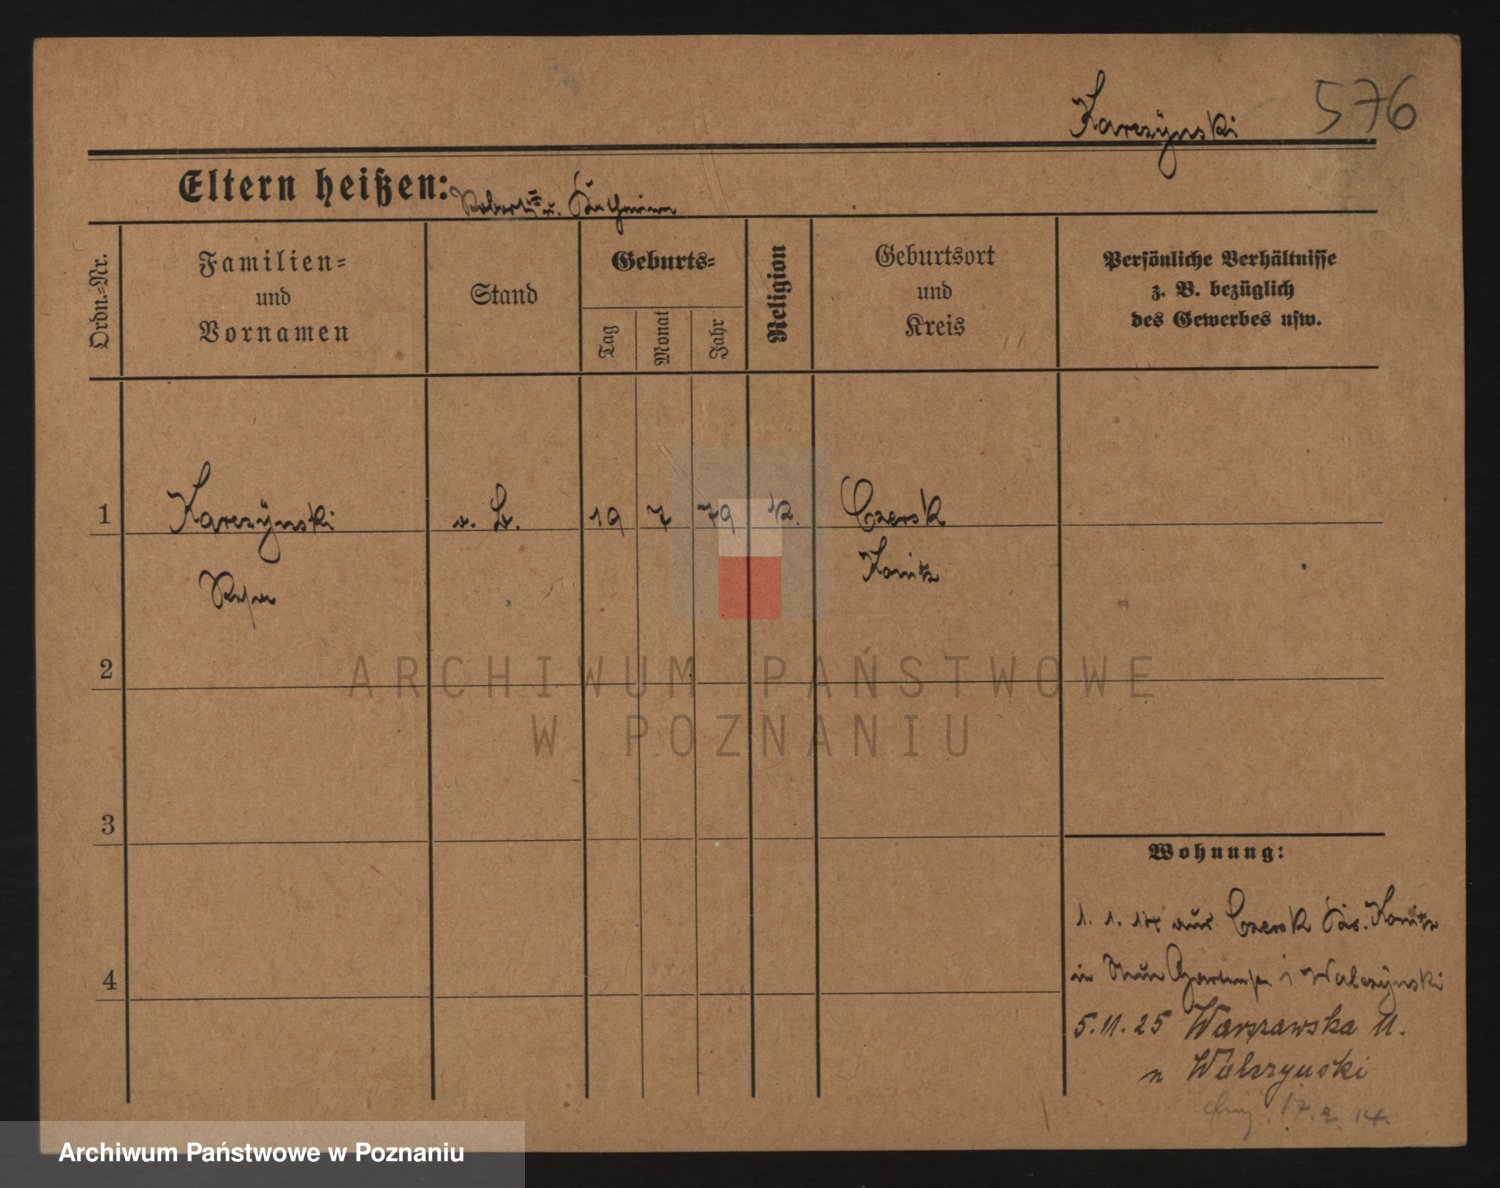 Karczynski 576
Eltern heißen:
Ordn.-Nr.
Familien-
und
Vornamen
Stand
Geburts-
Tag
Monat
Jahr
Religion
Geburtsort
und
Kreis
Persönliche Verhältnisse
z. B. bezüglich
des Gewerbes usw.
1 Karczynski 19 7 79 k. Czersk
Konitz
2
3
4
Wohnung:
1. 1. 14 aus Czersk Konitz
in Walczynski
5.11.25 Warszawska 11.
n Walczynski
17. 2. 14.
ARCHIWUM PAŃSTWOWE
W POZNANIU
Archiwum Państwowe w Poznaniu